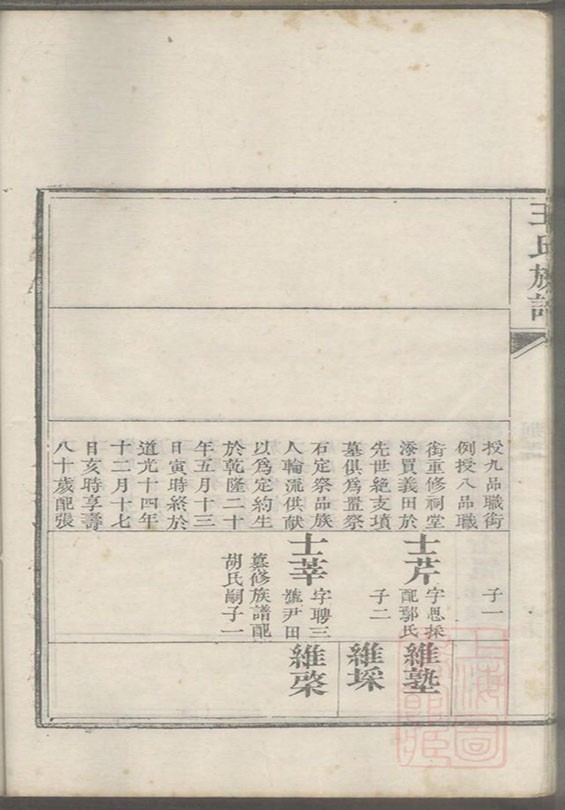 王氏族譜
授九品職銜
例授八品職
銜重修祠堂
添買義田於
先世絶支墳
墓俱爲置祭
石定祭品族
人輪流供献
以爲定約生
於乾隆二十
年五月十三
日寅時終於
道光十四年
十二月十七
日亥時享壽
八十歲配張
子一
士芹
字思採
配鄢氏
子二
士莘
字聘三
號尹田
纂修族譜配
胡氏嗣子一
維塾
維採
維棨